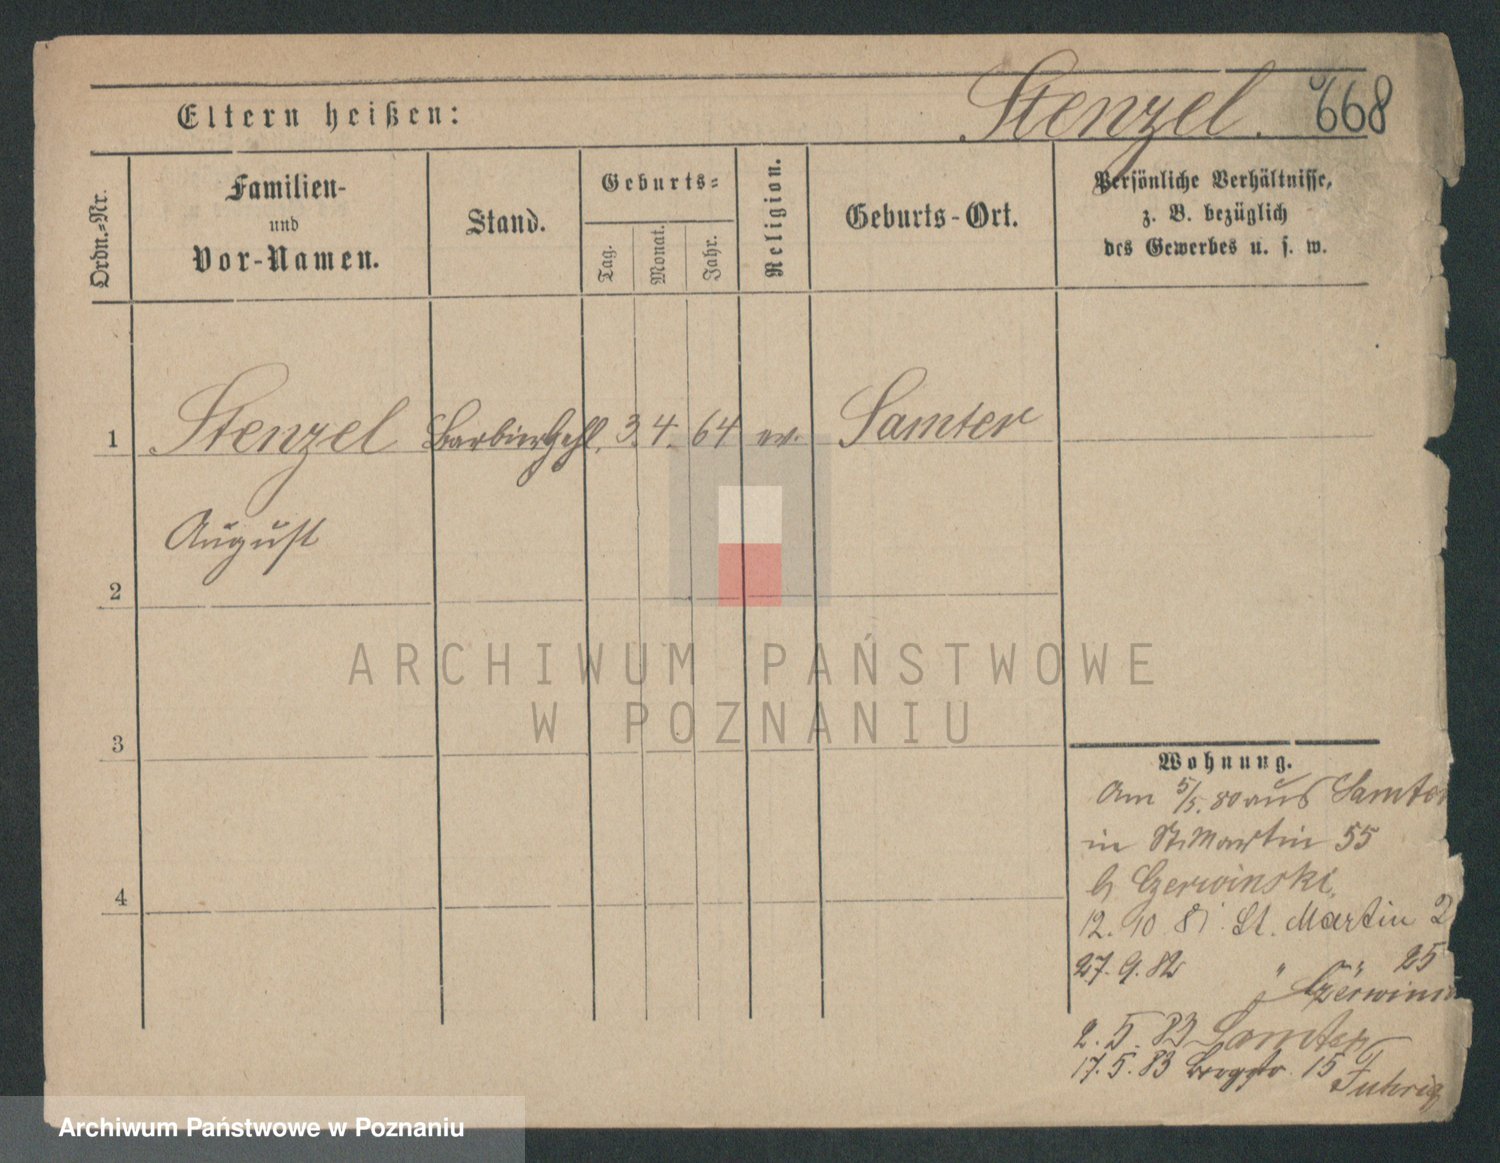 Eltern heißen: Stenzel. 668
Ordn.-Nr.
Familien-
und
Vor-Namen.
Stand.
Geburts-
Tag.
Monat.
Jahr.
Religion.
Geburts-Ort.
Persönliche Verhältnisse,
z. B. bezüglich
des Gewerbes u. s. w.
1 Stenzel BarbierGehl. 3. 4. 64 ev. Samter
August
2
3
4
ARCHIWUM PAŃSTWOWE
W POZNANIU
Wohnung.
Am 5/5. 80 aus Samter
in St. Martin 55
b Czerwinski
12. 10 81 St. Martin 2
27. 9. 82 " " 25
Czerwins
2. 5. 83 Samter
17. 5. 83 15 Fuhrig
Archiwum Państwowe w Poznaniu